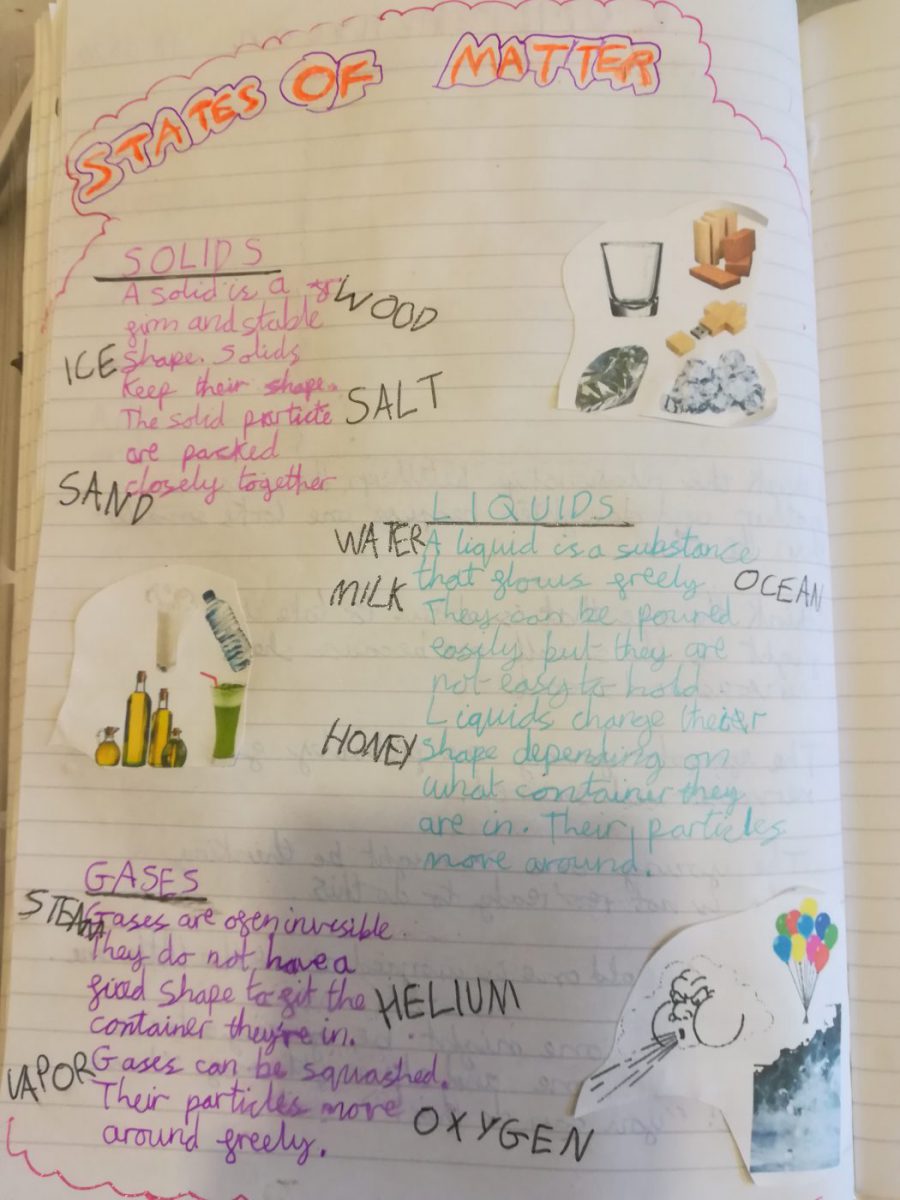 STATES OF MATTER
SOLIDS
A solid is a
WOOD
firm and stable
ICE
shape. Solids
keep their shape.
SALT
The solid particle
are packed
SAND
closely together
LIQUIDS
WATER
A liquid is a substance
MILK
that flows freely
OCEAN
They can be poured
easily but they are
not easy to hold
Liquids change their
HONEY
shape depending on
what container they
are in. Their particles
move around.
GASES
STEAM
Gases are ofen invesible.
They do not have a
fixed shape to fit the
HELIUM
container they're in.
VAPOR
Gases can be squashed.
Their particles move
OXYGEN
around freely.